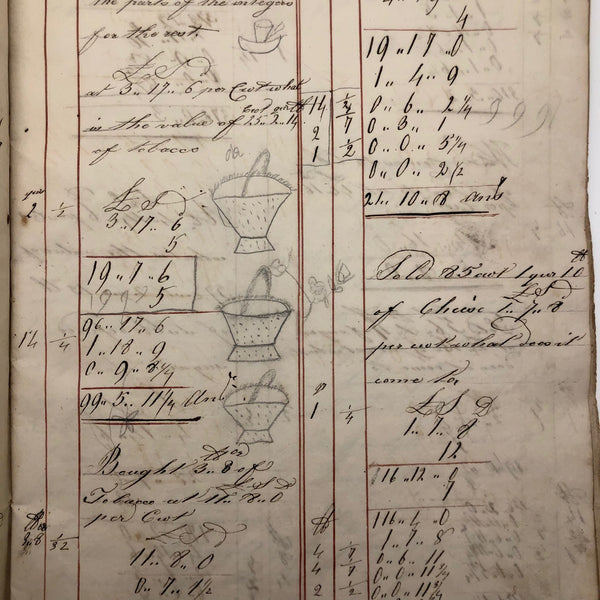 the parts of the integers
for the rest.
£ S D
at 3„17„6 per Cwt what
Cwt qur lb
is the value of 25„2„14
of tobacco
qur
2 1/2
£ S D
3„17„6
5
19„7„6
5
96„17„6
14 1/4
1„18„9
0„9„8 1/4
99„5„11 1/4 Ans
Bought 3„8 of
Tobacco at 11„8„0
£ S D
per Cwt
3„8 1/32
£ S D
11„8„0
0„7„1 1/2
4
19„17„0
1„4„9
14 1/2 0„6„2 1/4
2 1/7 0„3„1
1 1/2 0„0„5 3/4
0„0„2 1/2
21„10„8 Ans
Sold 85 cwt 1 qur 10 lb
£ S D
of Cheise 1„7„8
per cwt what does it
come to
£ S D
1 1/4
1„7„8
12
16„12„0
7
116„4„0
lb
1„7„8
4 1/7 0„6„11
4 1/7 0„0„11 3/4
2 1/2 0„0„11 3/4